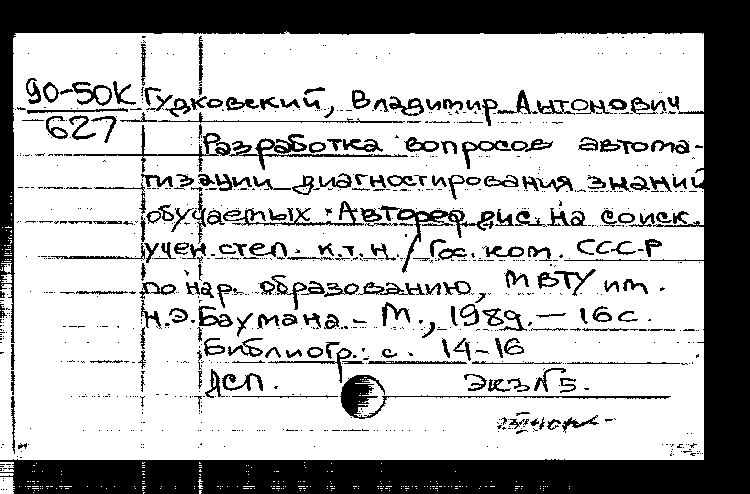 90-50К Гудковский, Владимир Антонович
627
Разработка вопросов автома-
тизации диагностирования знаний
обучаемых : Автореф дис. на соиск.
учен. степ. к.т.н. / Гос. ком. СССР
по нар. образованию, МВТУ им.
Н.Э. Баумана. - М., 1989. - 16 с.
Библиогр.: с. 14-16
ДСП. Экз N 5.